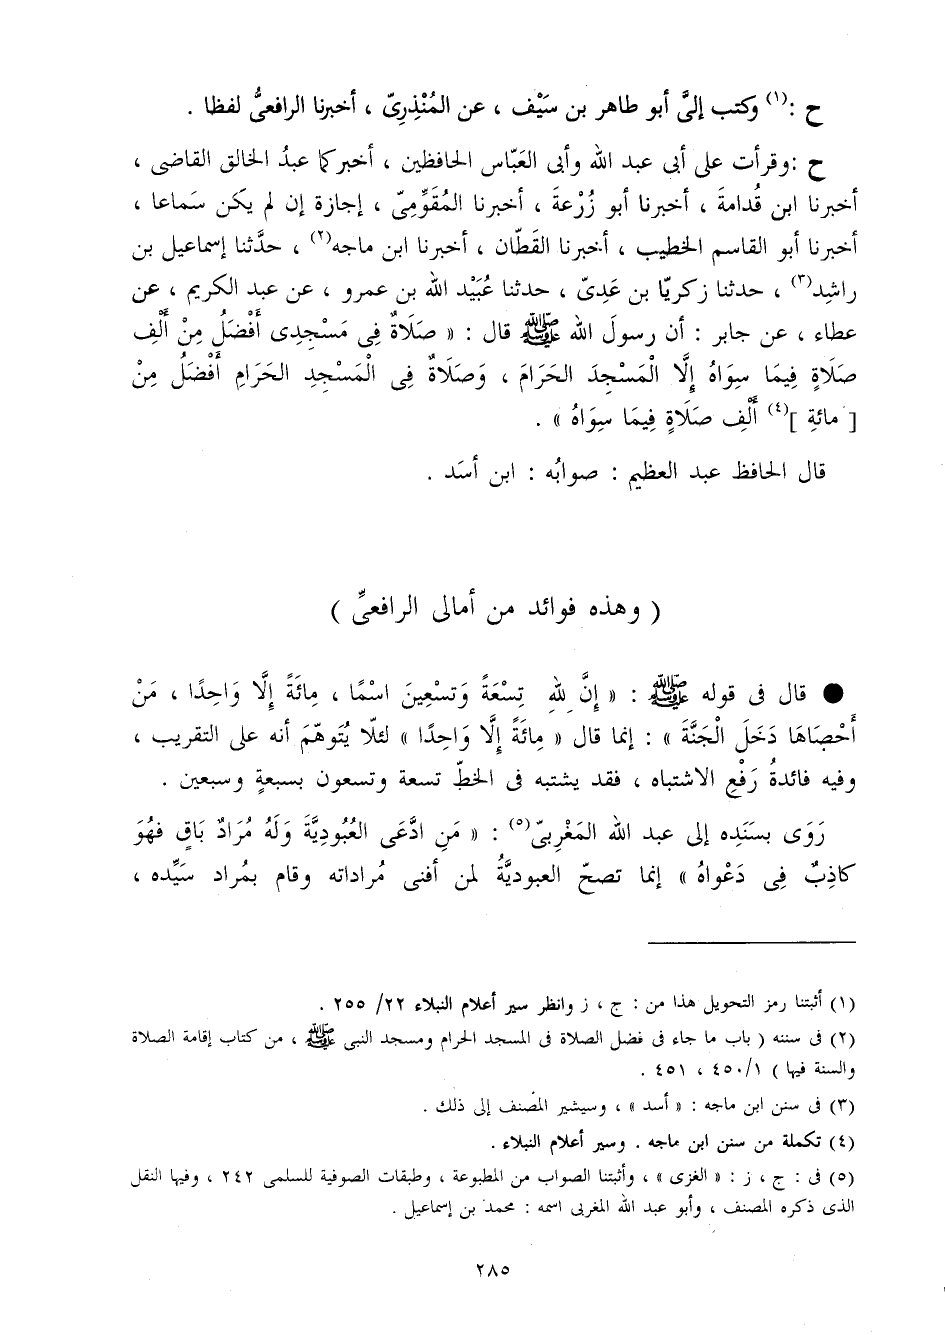 ح :(١) وكتب إلىَّ أبو طاهر بن سَيْف ، عن المُنْذِرِىّ ، أخبرنا الرافعىُّ لفظا .
ح :وقرأت على أبى عبد الله وأبى العَبّاس الحافظين ، أخبركما عبدُ الخالق القاضى ،
أخبرنا ابن قُدامةَ ، أخبرنا أبو زُرْعةَ ، أخبرنا المُقوِّمِىّ ، إجازة إن لم يكن سَماعا ،
أخبرنا أبو القاسم الخطيب ، أخبرنا القَطّان ، أخبرنا ابن ماجه(٢) ، حدَّثنا إسماعيل بن
راشِد(٣) ، حدثنا زكريّا بن عَدِىّ ، حدثنا عُبَيْد الله بن عمرو ، عن عبد الكريم ، عن
عطاء ، عن جابر : أن رسولَ الله ﷺ قال : « صَلَاةٌ فِى مَسْجِدِى أَفْضَلُ مِنْ أَلْفِ
صَلَاةٍ فِيمَا سِوَاهُ إِلَّا الْمَسْجِدَ الحَرَامَ ، وَصَلَاةٌ فِى الْمَسْجِدِ الحَرَامِ أَفْضَلُ مِنْ
[ مائةِ ](٤) أَلْفِ صَلَاةٍ فِيمَا سِوَاهُ » .
قال الحافظ عبد العظيم : صوابُه : ابن أسَد .
( وهذه فوائد من أمالى الرافعىِّ )
● قال فى قوله ﷺ : « إِنَّ لِلّٰهِ تِسْعَةً وَتسْعِينَ اسْمًا ، مِائَةً إِلَّا وَاحِدًا ، مَنْ
أَحْصَاهَا دَخَلَ الْجَنَّةَ » : إنما قال « مِائَةً إِلَّا وَاحِدًا » لئلّا يُتَوهّمَ أنه على التقريب ،
وفيه فائدةُ رَفْعِ الاشتباه ، فقد يشتبه فى الخطّ تسعة وتسعون بسبعةٍ وسبعين .
رَوَى بسَنَدِه إلى عبد الله المَغْرِبىّ(٥) : « مَنِ ادَّعَى العُبُودِيَّةَ وَلَهُ مُرَادٌ بَاقٍ فَهُوَ
كاذِبٌ فِى دَعْواهُ » إنما تصحّ العبوديَّةُ لمن أفنى مُراداته وقام بمُراد سَيِّده ،
(١) أثبتنا رمز التحويل هذا من : ج ، ز وانظر سير أعلام النبلاء ٢٢/ ٢٥٥ .
(٢) فى سننه ( باب ما جاء فى فضل الصلاة فى المسجد الحرام ومسجد النبى ﷺ ، من كتاب إقامة الصلاة
والسنة فيها ) ٤٥٠/١ ، ٤٥١ .
(٣) فى سنن ابن ماجه : « أسد » ، وسيشير المصنف إلى ذلك .
(٤) تكملة من سنن ابن ماجه . وسير أعلام النبلاء .
(٥) فى : ج ، ز : « الغزى » ، وأثبتنا الصواب من المطبوعة ، وطبقات الصوفية للسلمى ٢٤٢ ، وفيها النقل
الذى ذكره المصنف ، وأبو عبد الله المغربى اسمه : محمد بن إسماعيل .
٢٨٥